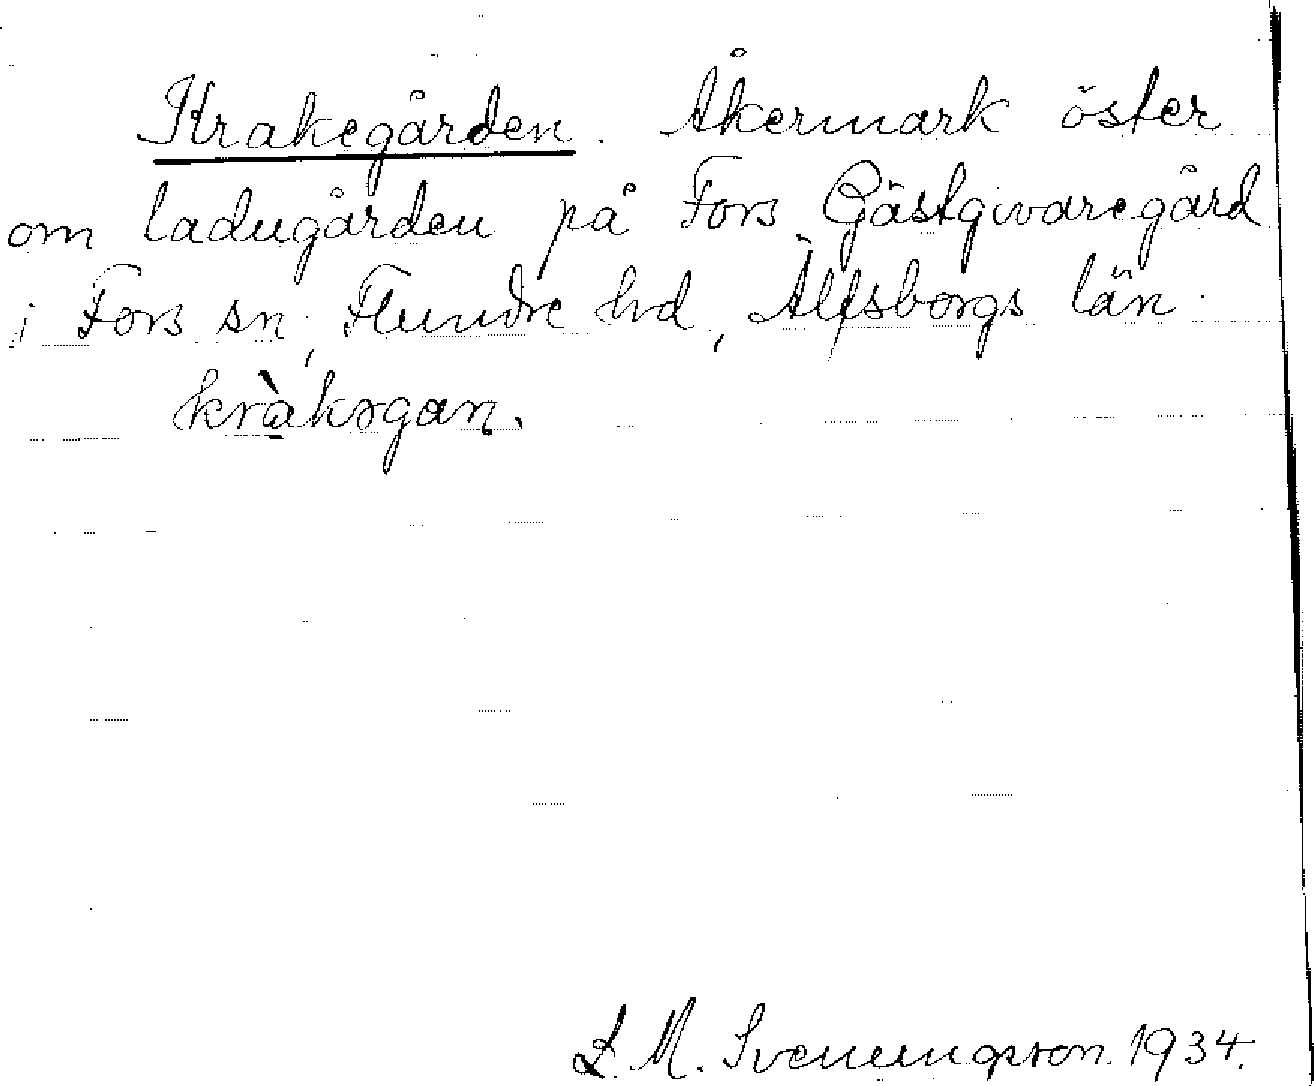 Krakegården. Åkermark öster
om ladugården på Fors Gästgivaregård
i Fors sn, Flundre hd, Älfsborgs län.
kràkogan.
L. M. Svenungsson 1934.